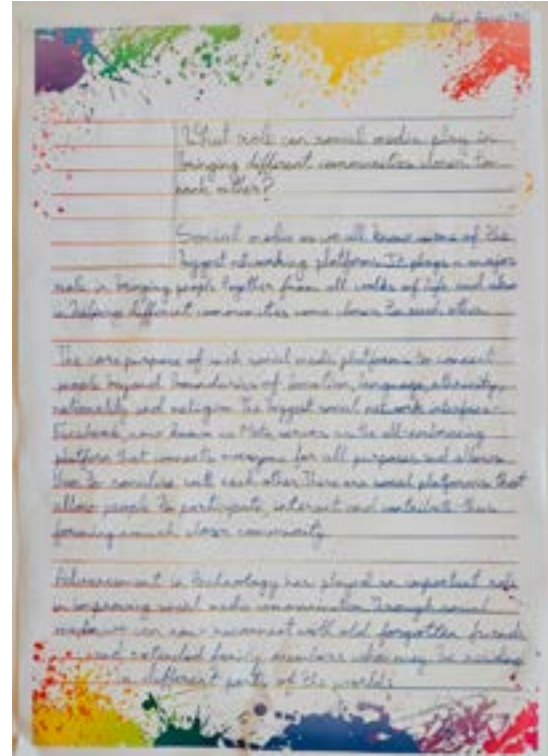 What role can social media play in
bringing different communities closer to
each other?
Social media as we all know is one of the
biggest networking platforms. It plays a major
role in bringing people together from all walks of life and also
in helping different communities come closer to each other.
The core purpose of such social media platforms to connect
people beyond boundaries of location, language, ethnicity,
nationality and religion. The biggest social network interface -
Facebook, now known as Meta serves as the all-embracing
platform that connects everyone for all purposes and allows
them to socialise with each other. There are social platforms that
allow people to participate, interact and contribute thus
forming a much closer community.
Advancement in technology has played an important role
in improving social media communication. Through social
media we can now reconnect with old forgotten friends
and extended family members who may be residing
in different parts of the world.